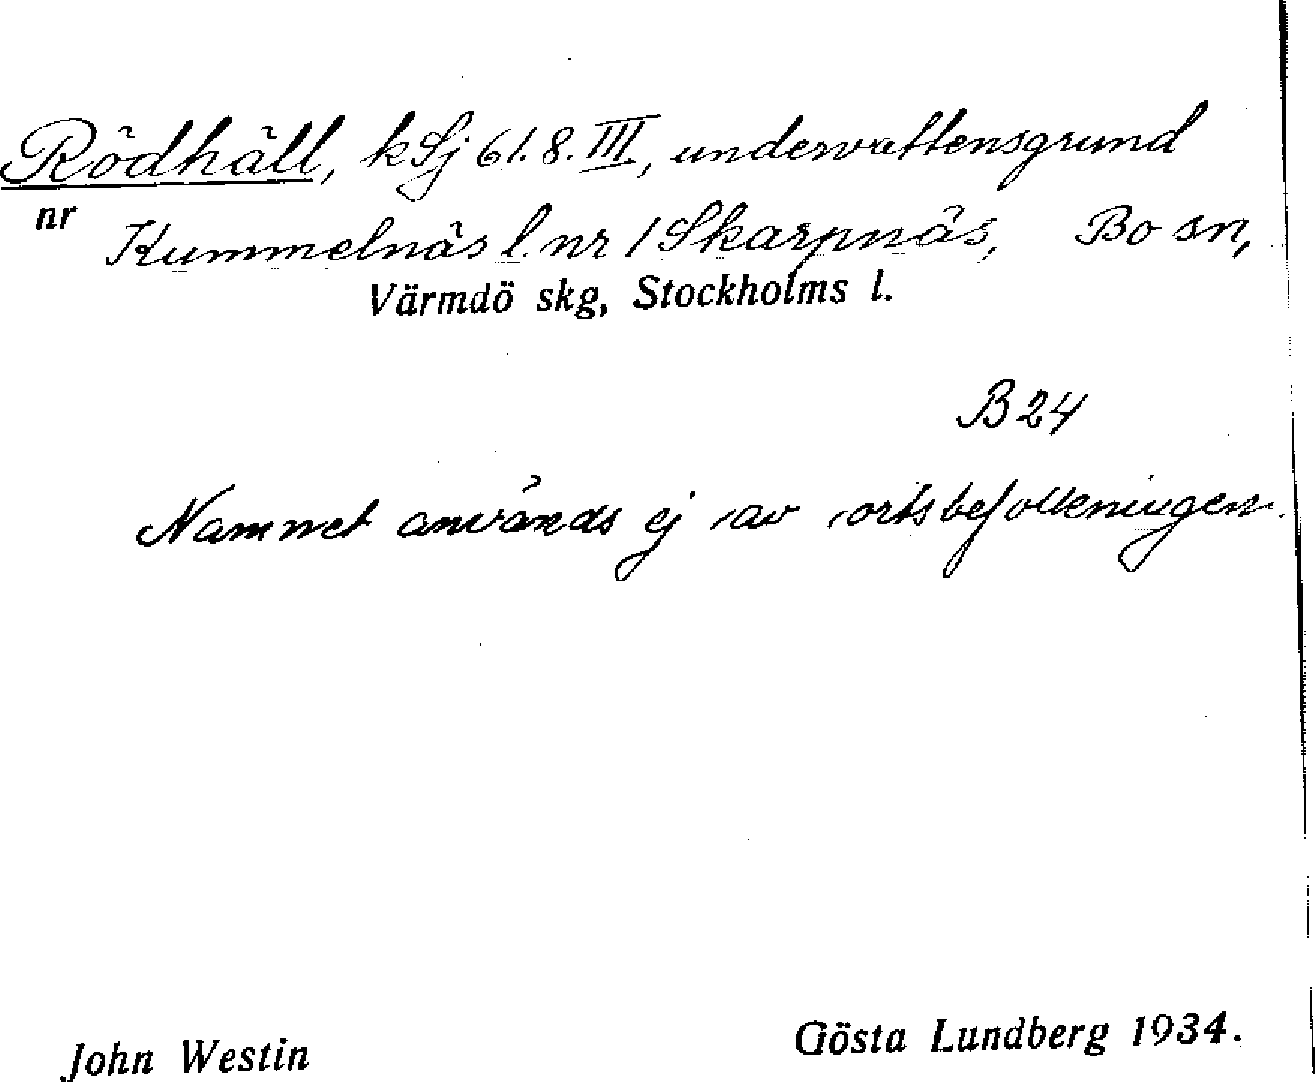 Rödhäll, kSj 61.8.III, undervattensgrund
nr Kummelnäs l. nr 1 Skarpnäs, Bo sn,
Värmdö skg, Stockholms l.
B24
Namnet används ej av ortsbefolkningen.
John Westin Gösta Lundberg 1934.